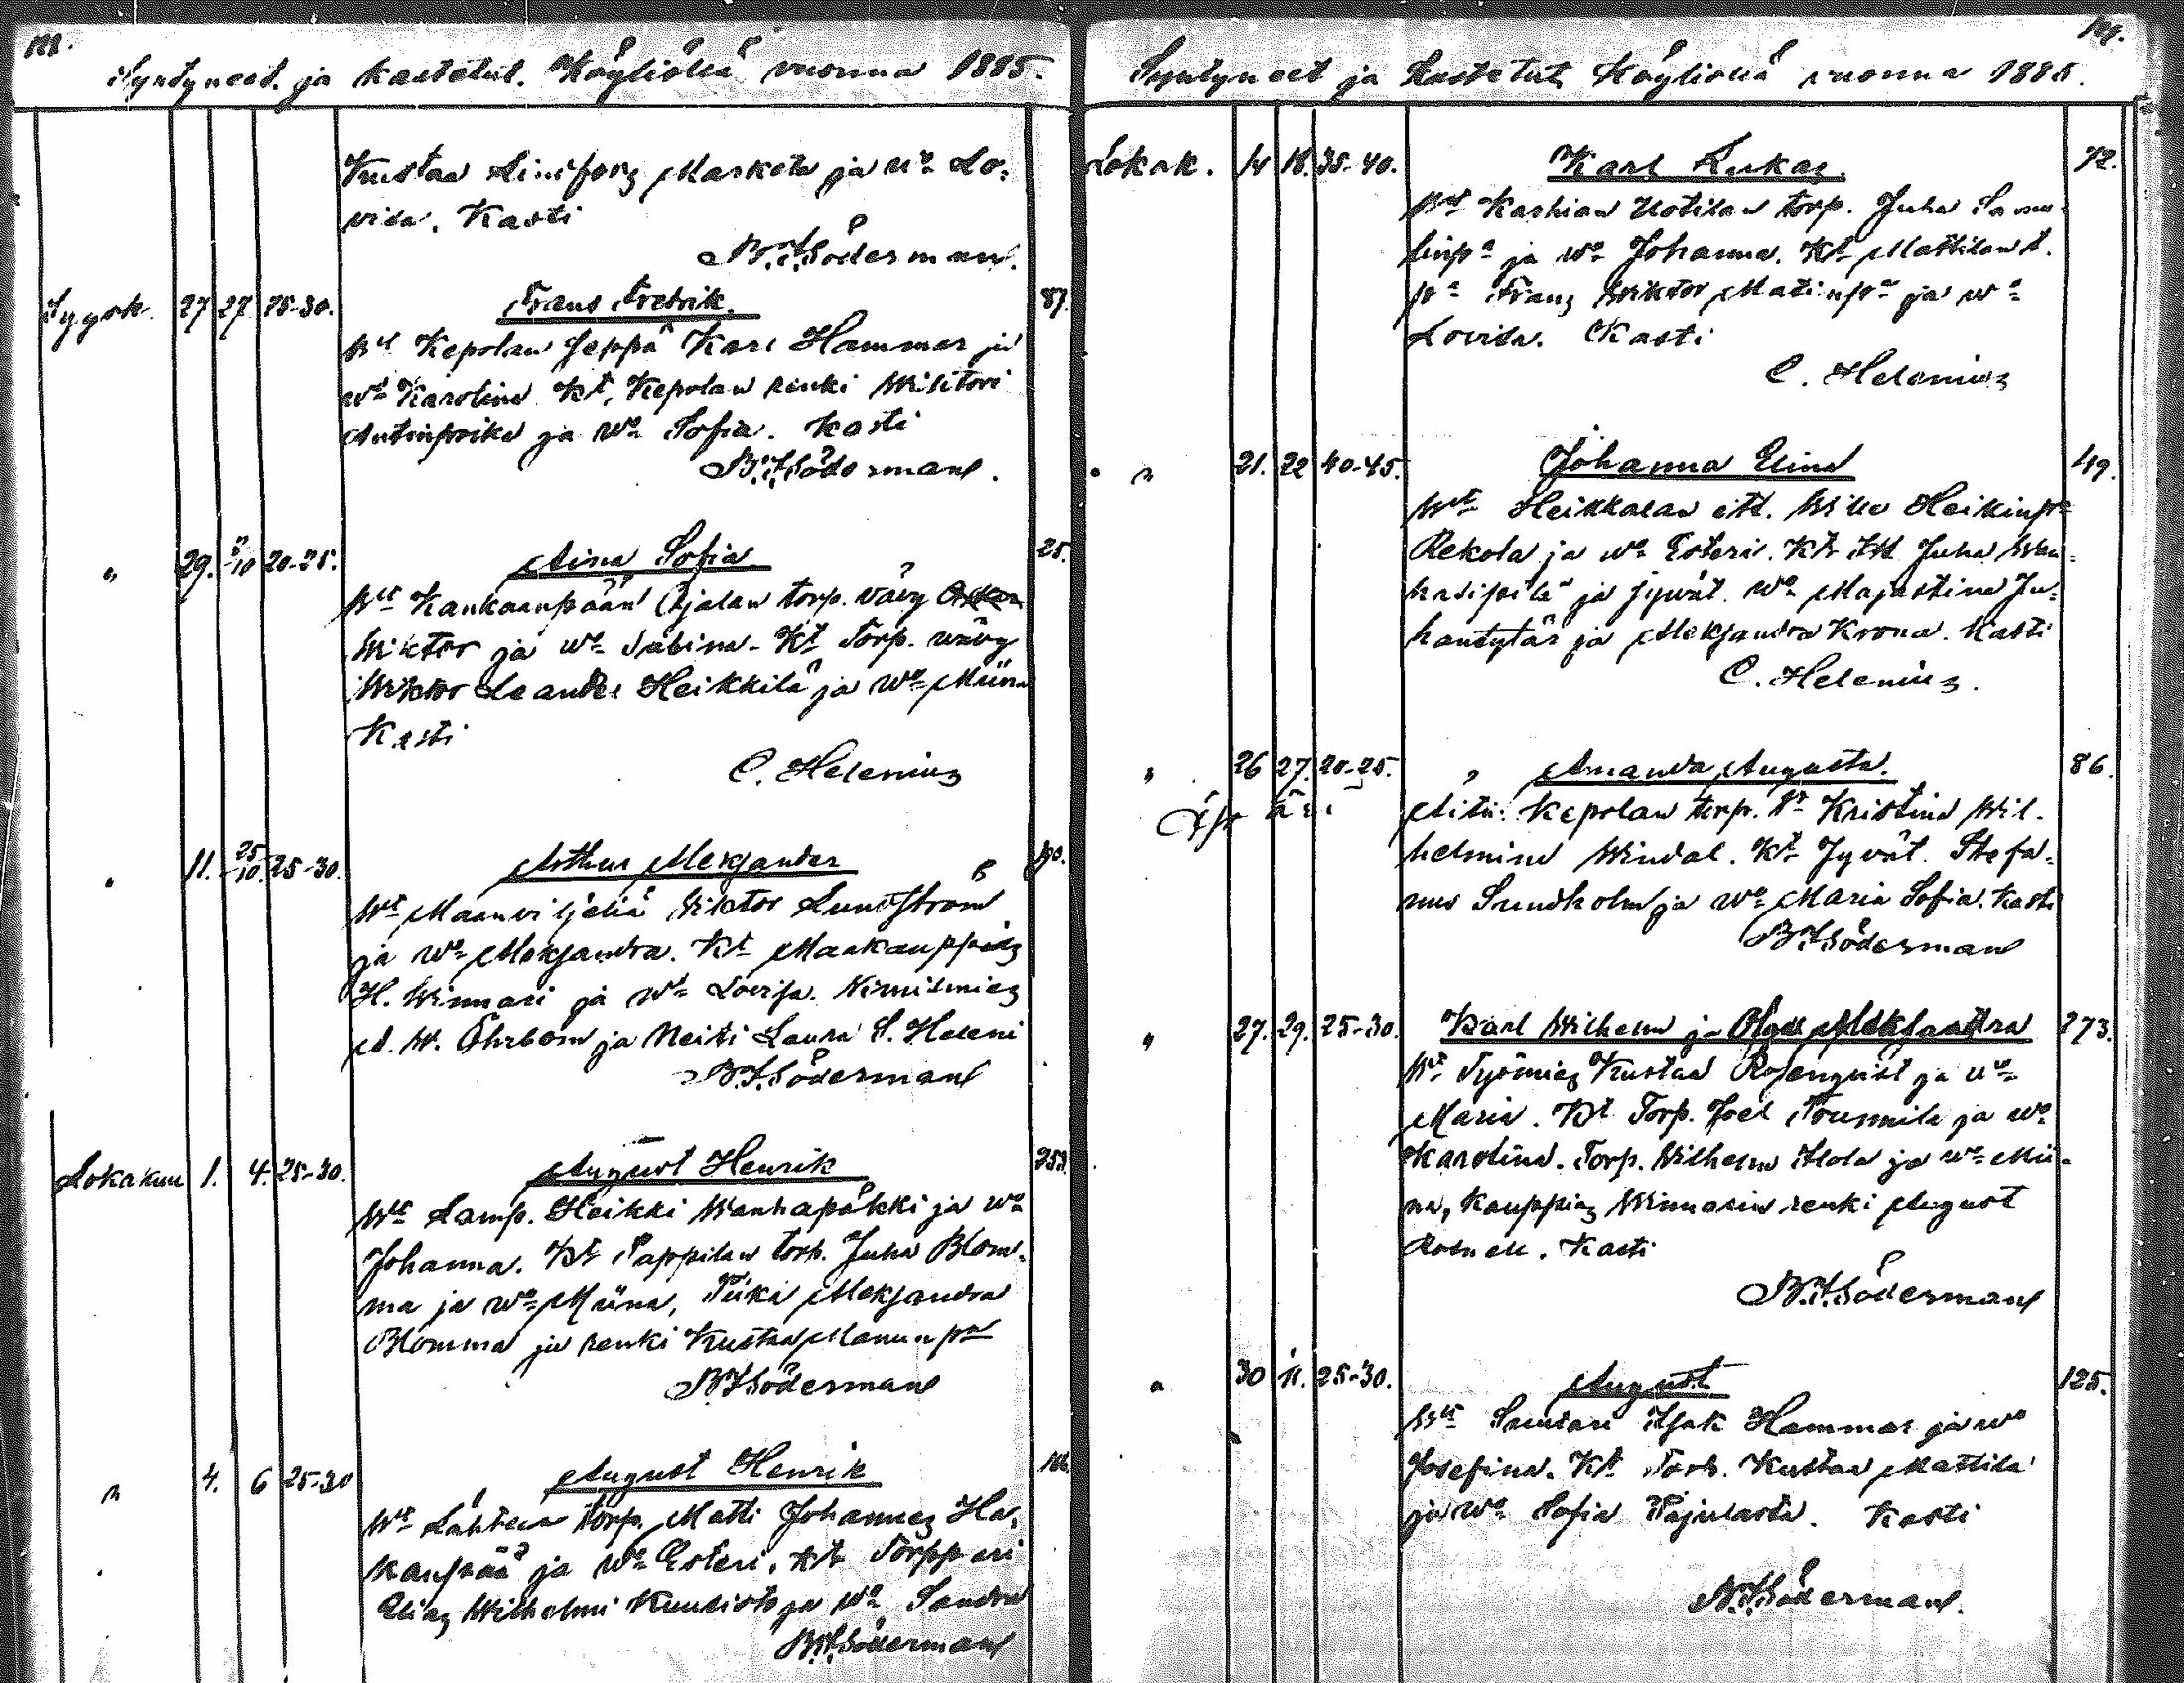 Syntyneet ja kastetut Köyliössä vuonna 1885.
Kustaa Marketa ja wo Lo-
visa. Kasti
B. F. Söderman.
Syysk. 27 27 25-30. Frans Fredrik. 87.
Wt Kepolan seppä Karl Hammar ja
wo Karolina Kt. Kepolan renki Wihtori
Antinpoika ja Wo Sofia. Kasti
B. F. Söderman.
" 29. 20-25. Aina Sofia 25.
Wt Kankaanpään Ojalan torp. vävy
Wiktor ja wo Sabina. Kt Torp. wävy
Wiktor Leander Heikkilä ja Wo Miina
Kasti
C. Helenius
" 11. 25/10. 25-30. Arthur Aleksander
Wt Maanviljeliä Viktor Lundström
ja Wo Aleksandra. Kt Maakauppias
H. Winnari ja Wo Lovisa. Nimismies
A. W. Öhrbom ja Neiti Laura S. Heleni
B. F. Söderman
Lokakuu 1. 4. 25-30. August Henrik 253.
Wt Lamp. Heikki Wanhapälkki ja wo
Johanna. Kt Pappilan torp. Juha Blom-
ma ja wo Miina, Piika Aleksandra
Blomma ja renki Kustaa Manunpa
B. F. Söderman
" 4. 6 25-30 August Henrik
Wt torp. Matti Johannes Ha-
kanpää ja wo Esteri, Kt Torppari
Elias Wilhelmi Kuusisto ja Wo Sandra
B. F. Söderman
Syntyneet ja kastetut Köyliössä vuonna 1885.
Lokak. 14 18. 35-40. Karl Lukas. 72.
Wt Karhian Uotilan torp. Juha Samu-
linpa ja wo Johanna. Kt Mattilan t.
Frans Wiktor Matinpa ja wo
Lovisa. Kasti
C. Helenius
" 21. 22 40-45. Johanna Elina 49.
Wt Heikkalan itt. Wille Heikinpa
Rekola ja wo Esteri. Kt Itt Juha
ja jyvät. wo Majastina Ju-
hantytär ja Aleksandra Krona. Kasti
C. Helenius.
" 26 27. 20-25. Amanda Augusta. 86.
Äpärä
Äiti: Kepolan torp. Kristina Wil-
helmina Windal. Kt Jyvät. Stefa-
nus Sundholm ja wo Maria Sofia. Kasti
B. F. Söderman
" 27. 29. 25-30. Karl Wilhelm ja Olga Aleksandra 273.
Wt Työmies Kustaa Rosenqvist ja wo
Maria. Kt Torp. Joel Tousmila ja wo
Karolina. Torp. Wilhelm Alola ja wo Mii-
na, Kauppias Winnarin renki August
Kasti
B. F. Söderman
" 30 11. 25-30. August 125.
Wt Suutari Isak Hammar ja wo
Josefina. Kt Torp. Kustaa Mattila
ja Wo Sofia Pajulasta. Kasti
B. F. Söderman.